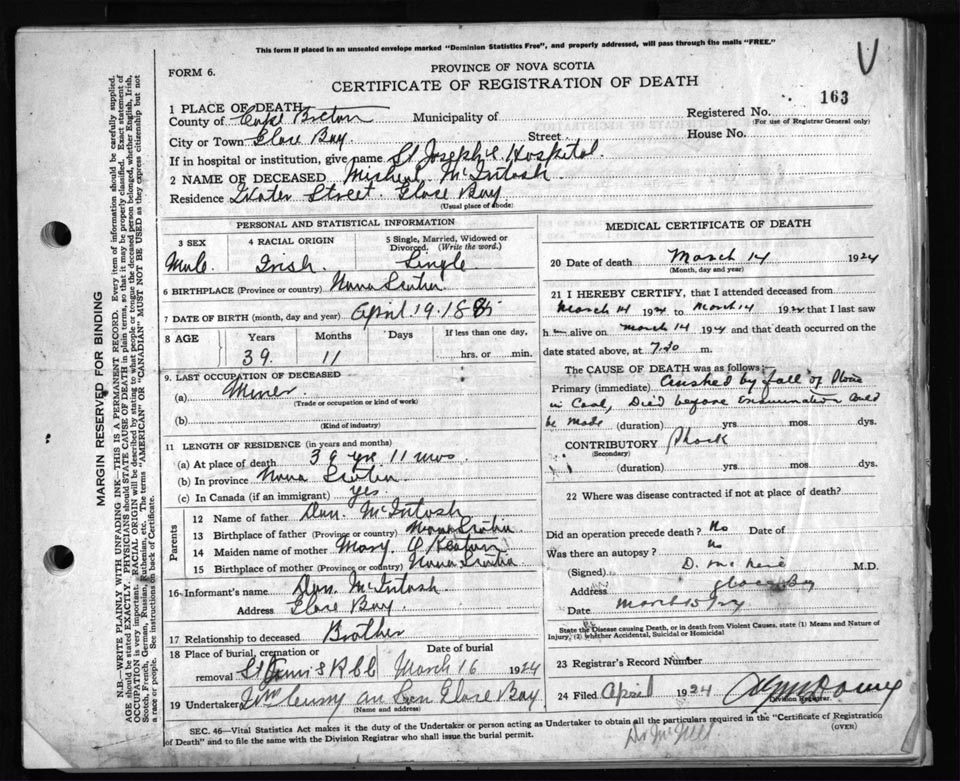 This form if placed in an unsealed envelope marked "Dominion Statistics Free", and properly addressed, will pass through the mails "FREE."
FORM 6.
PROVINCE OF NOVA SCOTIA
CERTIFICATE OF REGISTRATION OF DEATH
163
1 PLACE OF DEATH
County of Cape Breton Municipality of
Registered No.
(For use of Registrar General only)
City or Town Glace Bay Street
House No.
If in hospital or institution, give name St Joseph's Hospital
2 NAME OF DECEASED Micheal McIntosh
Residence Water Street Glace Bay
(Usual place of abode)
PERSONAL AND STATISTICAL INFORMATION
3 SEX
4 RACIAL ORIGIN
5 Single, Married, Widowed or Divorced. (Write the word.)
Male Irish Single
6 BIRTHPLACE (Province or country) Nova Scotia
7 DATE OF BIRTH (month, day and year) April 19. 1885
8 AGE Years Months Days If less than one day,
39. 11 hrs. or min.
9. LAST OCCUPATION OF DECEASED
(a) Miner
(Trade or occupation or kind of work)
(b)
(Kind of industry)
11 LENGTH OF RESIDENCE (in years and months)
(a) At place of death 39 yrs 11 mos
(b) In province Nova Scotia
(c) In Canada (if an immigrant) yes
Parents
12 Name of father McIntosh
13 Birthplace of father (Province or country) Nova Scotia
14 Maiden name of mother Mary
15 Birthplace of mother (Province or country) Nova Scotia
16 Informant's name McIntosh
Address Glace Bay.
17 Relationship to deceased Brother
18 Place of burial, cremation or removal
Date of burial
March 16 1924
19 Undertaker Glace Bay
(Name and address)
MEDICAL CERTIFICATE OF DEATH
20 Date of death March 14 1924
(Month, day and year)
21 I HEREBY CERTIFY, that I attended deceased from
March 14 1924 to March 14 1924 that I last saw
h alive on March 14 1924 and that death occurred on the
date stated above, at 7.30 m.
The CAUSE OF DEATH was as follows:
Primary (immediate) Crushed by fall of Stone
in Coal, Died before Examination could
be made (duration) yrs mos. dys.
CONTRIBUTORY Shock
(Secondary)
(duration) yrs mos. dys.
22 Where was disease contracted if not at place of death?
Did an operation precede death? No Date of
Was there an autopsy? No
(Signed) D. McNeil M.D.
Address Glace Bay
Date March 15/24
State the Disease causing Death, or in death from Violent Causes, state (1) Means and Nature of Injury, (2) whether Accidental, Suicidal or Homicidal
23 Registrar's Record Number
24 Filed April 1924
Division Registrar
SEC. 46—Vital Statistics Act makes it the duty of the Undertaker or person acting as Undertaker to obtain all the particulars required in the "Certificate of Registration of Death" and to file the same with the Division Registrar who shall issue the burial permit.
(OVER)
Dr McNeil
MARGIN RESERVED FOR BINDING
N.B.—WRITE PLAINLY WITH UNFADING INK—THIS IS A PERMANENT RECORD. Every item of information should be carefully supplied.
AGE should be stated EXACTLY. PHYSICIANS should STATE CAUSE OF DEATH in plain terms, so that it may be properly classified. Exact statement of
OCCUPATION is very important. RACIAL ORIGIN will be described by stating to what people or tongue the deceased person belonged, whether English, Irish,
Scotch, French, German, Russian, Ruthenian, etc. The terms "AMERICAN" OR "CANADIAN" MUST NOT BE USED as they express citizenship but not
a race or people. See instructions on back of Certificate.